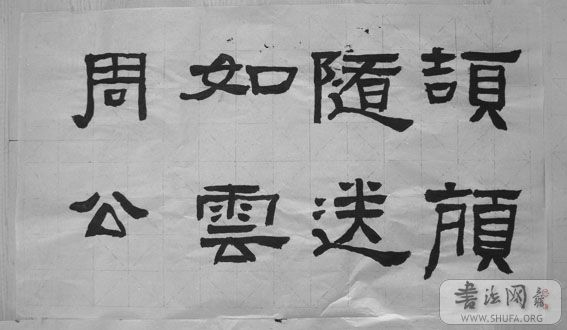 頡
隨送
如雲
周公
書法网
WWW.SHUFA.ORG